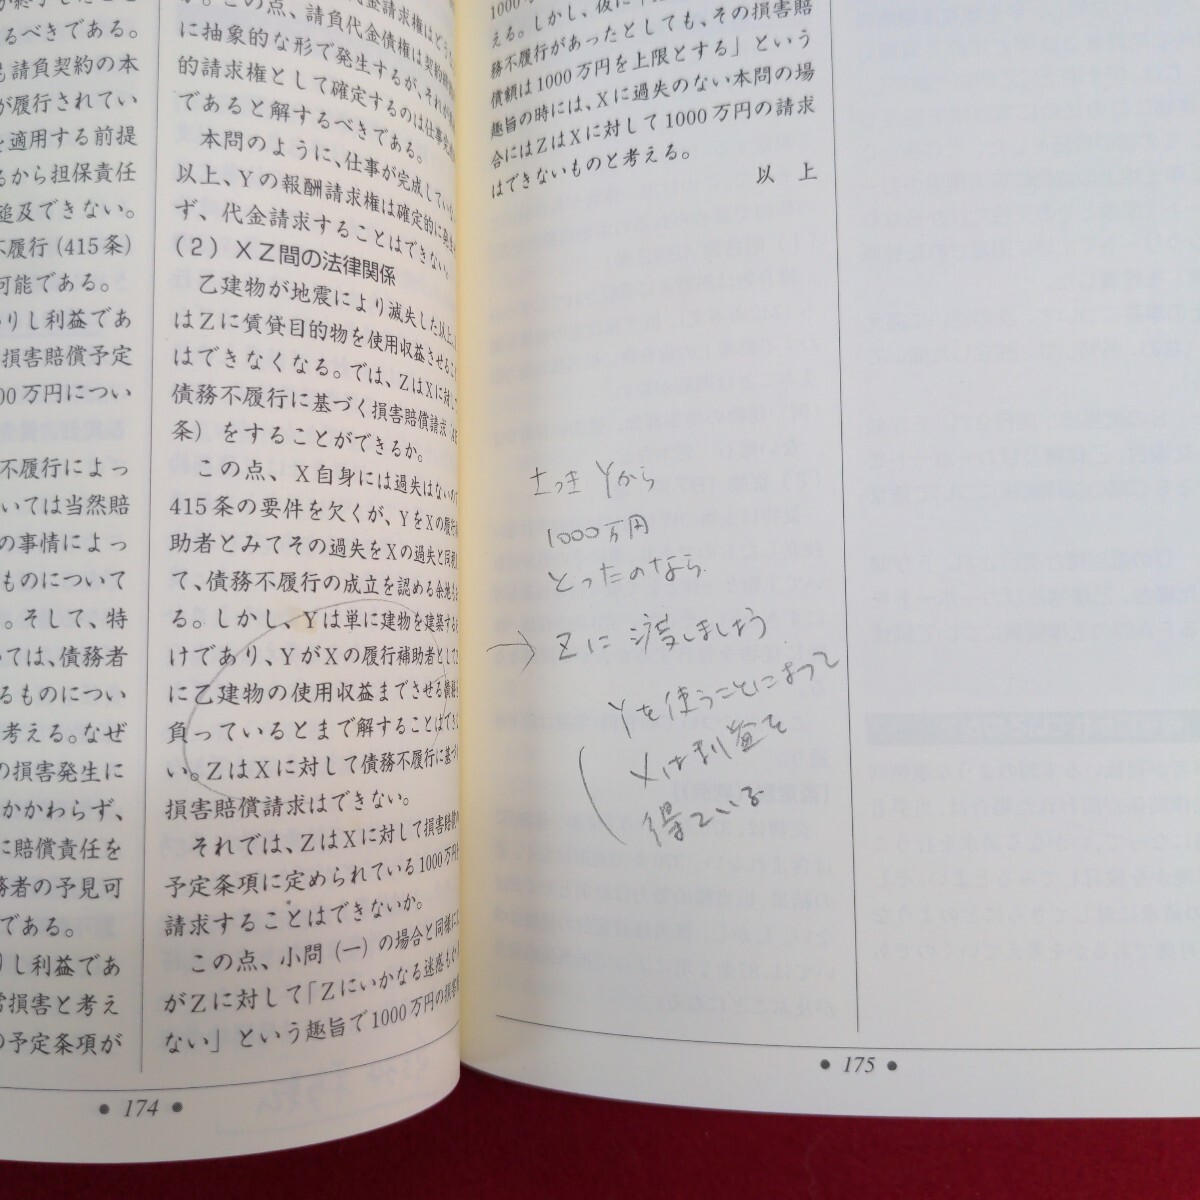 が終了したこと
るべきである。
も請負契約の本
が履行されてい
を適用する前提
るから担保責任
追及できない。
不履行(415条)
可能である。
りし利益であ
損害賠償予定
00万円につい
不履行によっ
いては当然賠
の事情によっ
ものについて
。そして、特
ては、債務者
るものについ
考える。なぜ
の損害発生に
かかわらず、
に賠償責任を
務者の予見可
である。
りし利益であ
常損害と考え
の予定条項が
• 174 •
代金請求権はどう
か。この点、請負代金債権は契約
に抽象的な形で発生するが、それが
的請求権として確定するのは仕事完成
であると解するべきである。
本問のように、仕事が完成していない
以上、Yの報酬請求権は確定的に発生
ず、代金請求することはできない。
(2)XZ間の法律関係
乙建物が地震により滅失した以上、
はZに賃貸目的物を使用収益させること
はできなくなる。では、ZはXに対し
債務不履行に基づく損害賠償請求(415
条)をすることができるか。
この点、X自身には過失はないので
415条の要件を欠くが、YをXの履行補
助者とみてその過失をXの過失と同視し
て、債務不履行の成立を認める余地もあ
る。しかし、Yは単に建物を建築するだ
けであり、YがXの履行補助者としてZ
に乙建物の使用収益までさせる債務を
負っているとまで解することはできな
い。ZはXに対して債務不履行に基づく
損害賠償請求はできない。
それでは、ZはXに対して損害賠償の
予定条項に定められている1000万円を
請求することはできないか。
この点、小問(一)の場合と同様に、
がZに対して「Zにいかなる迷惑もかけ
ない」という趣旨で1000万円の損害賠
1000万
える。しかし、仮に「
務不履行があったとしても、その損害賠
償額は1000万円を上限とする」という
趣旨の時には、Xに過失のない本問の場
合にはZはXに対して1000万円の請求
はできないものと考える。
以 上
Yから
1000万円
とったのなら
→Zに渡しましょう.
Yを使うことによって
Xは利益を
得ている
• 175 •